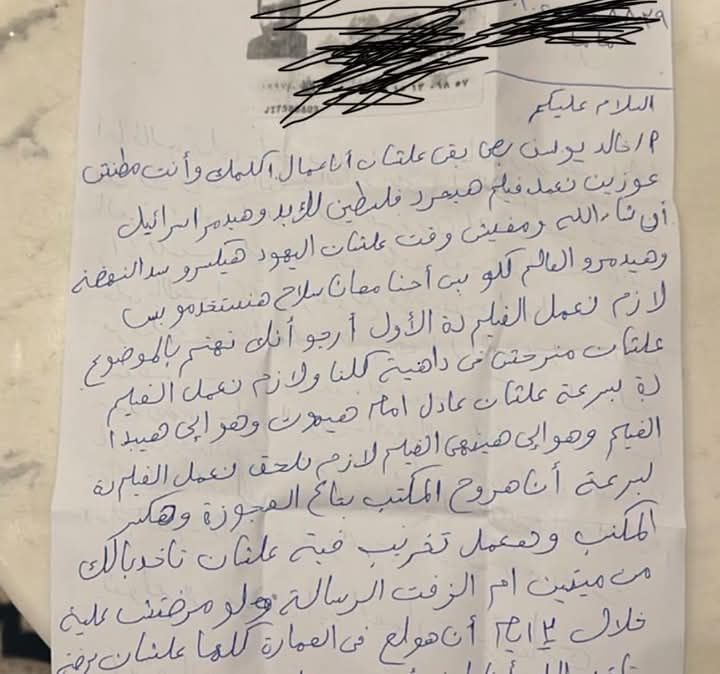 السلام عليكم
م/ خالد يوسف بص بقى علشان أنا عمال اكلمك وأنت مطنش
عوزين نعمل فيلم هيحرر فلسطين للأبد وهيدمر اسرائيل
أن شاء الله ومفيش وقت علشان اليهود هيكسرو سد النهضة
وهيدمرو العالم كلو بس أحنا معانا سلاح هنستخدمو بس
لازم نعمل الفيلم دة الأول أرجو أنك تهتم بالموضوع
علشان منرحش فى داهية كلنا ولازم نعمل الفيلم
دة بسرعة علشان عادل امام هيموت وهو إلى هيبدا
الفيلم وهو إلى هينهى الفيلم لازم نلحق نعمل الفيلم دة
بسرعة أنا هروح المكتب بتاع العجوزة وهكسر
المكتب وهعمل تخريب فية علشان تاخد بالك
من ميتين ام الزفت الرسالة ولو مردتش علية
خلال ٢ ايام أنا هولع فى العمارة كلها علشان